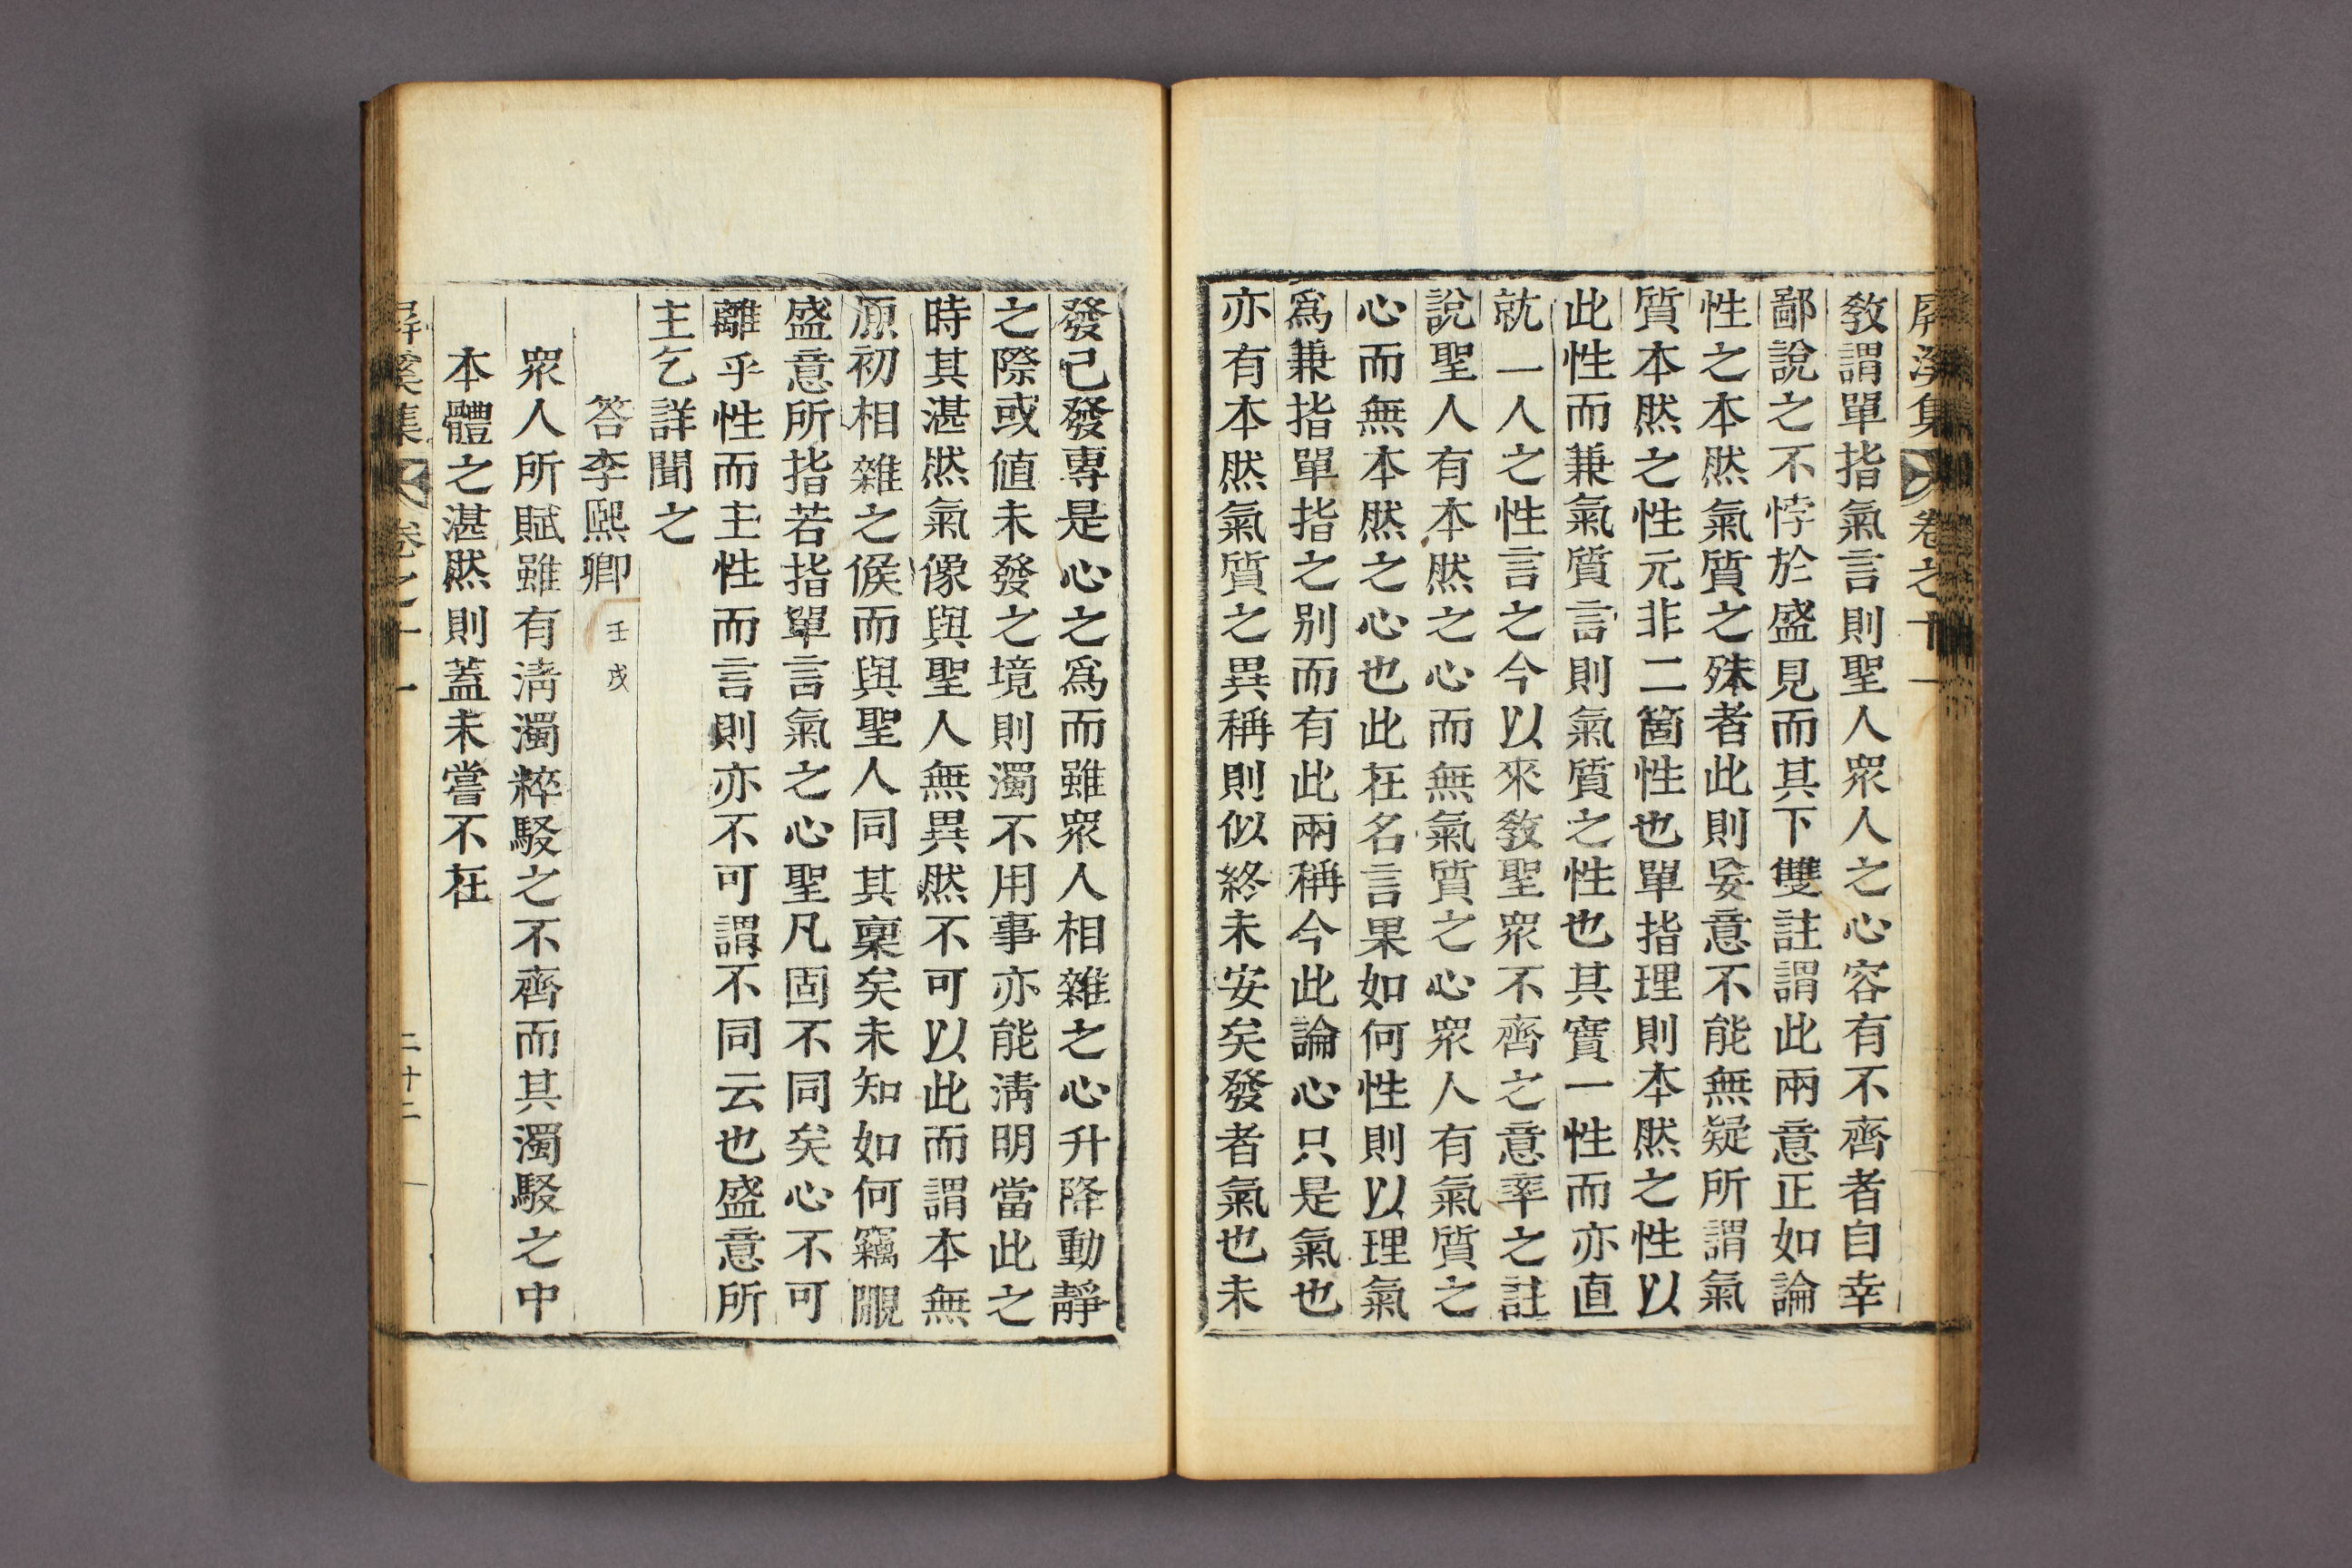 屛溪集 卷之十一
敎謂單指氣言則聖人衆人之心容有不齊者自幸
鄙說之不悖於盛見而其下雙註謂此兩意正如論
性之本然氣質之殊者此則妄意不能無疑所謂氣
質本然之性元非二箇性也單指理則本然之性以
此性而兼氣質言則氣質之性也其實一性而亦直
就一人之性言之今以來敎聖衆不齊之意率之註
說聖人有本然之心而無氣質之心衆人有氣質之
心而無本然之心也此在名言果如何性則以理氣
爲兼指單指之別而有此兩稱今此論心只是氣也
亦有本然氣質之異稱則似終未安矣發者氣也未
發已發專是心之爲而雖衆人相雜之心升降動靜
之際或値未發之境則濁不用事亦能淸明當此之
時其湛然氣像與聖人無異然不可以此而謂本無
原初相雜之候而與聖人同其稟矣未知如何竊覵
盛意所指若指單言氣之心聖凡固不同矣心不可
離乎性而主性而言則亦不可謂不同云也盛意所
主乞詳聞之
答李熙卿 壬戌
衆人所賦雖有淸濁粹駁之不齊而其濁駁之中
本體之湛然則蓋未嘗不在
屛溪集 卷之十一 二十二